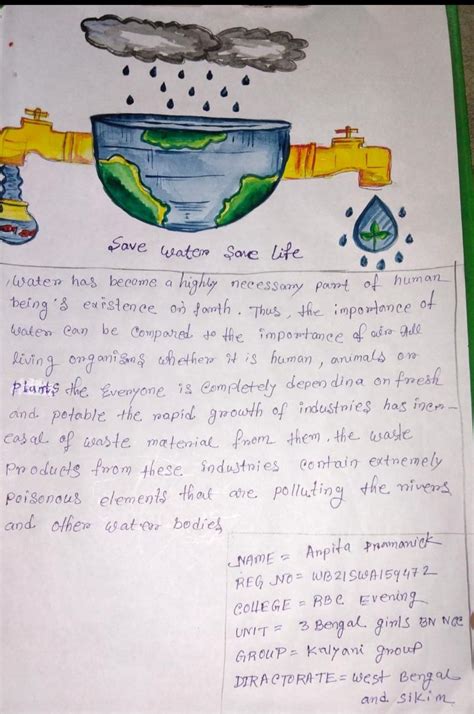 Save Water Save life
Water has become a highly necessary part of human
being's existence on Earth. Thus, the importance of
Water Can be Compared to the importance of air All
living organisms whether it is human, animals or
Plants the Everyone is Completely dependina on fresh
and potable the rapid growth of industries has incr-
easal of waste material from them. the waste
Products from these industries contain extremely
Poisonous elements that are polluting the rivers
and other water bodies
NAME = Arpita Pramanick
REG NO = WB21SWA159472
COllEGE = RBC Evening
UNIT = 3 Bengal girls BN NCC
GROUP = Kalyani group
DIRACTORATE = West Bengal
and Sikim